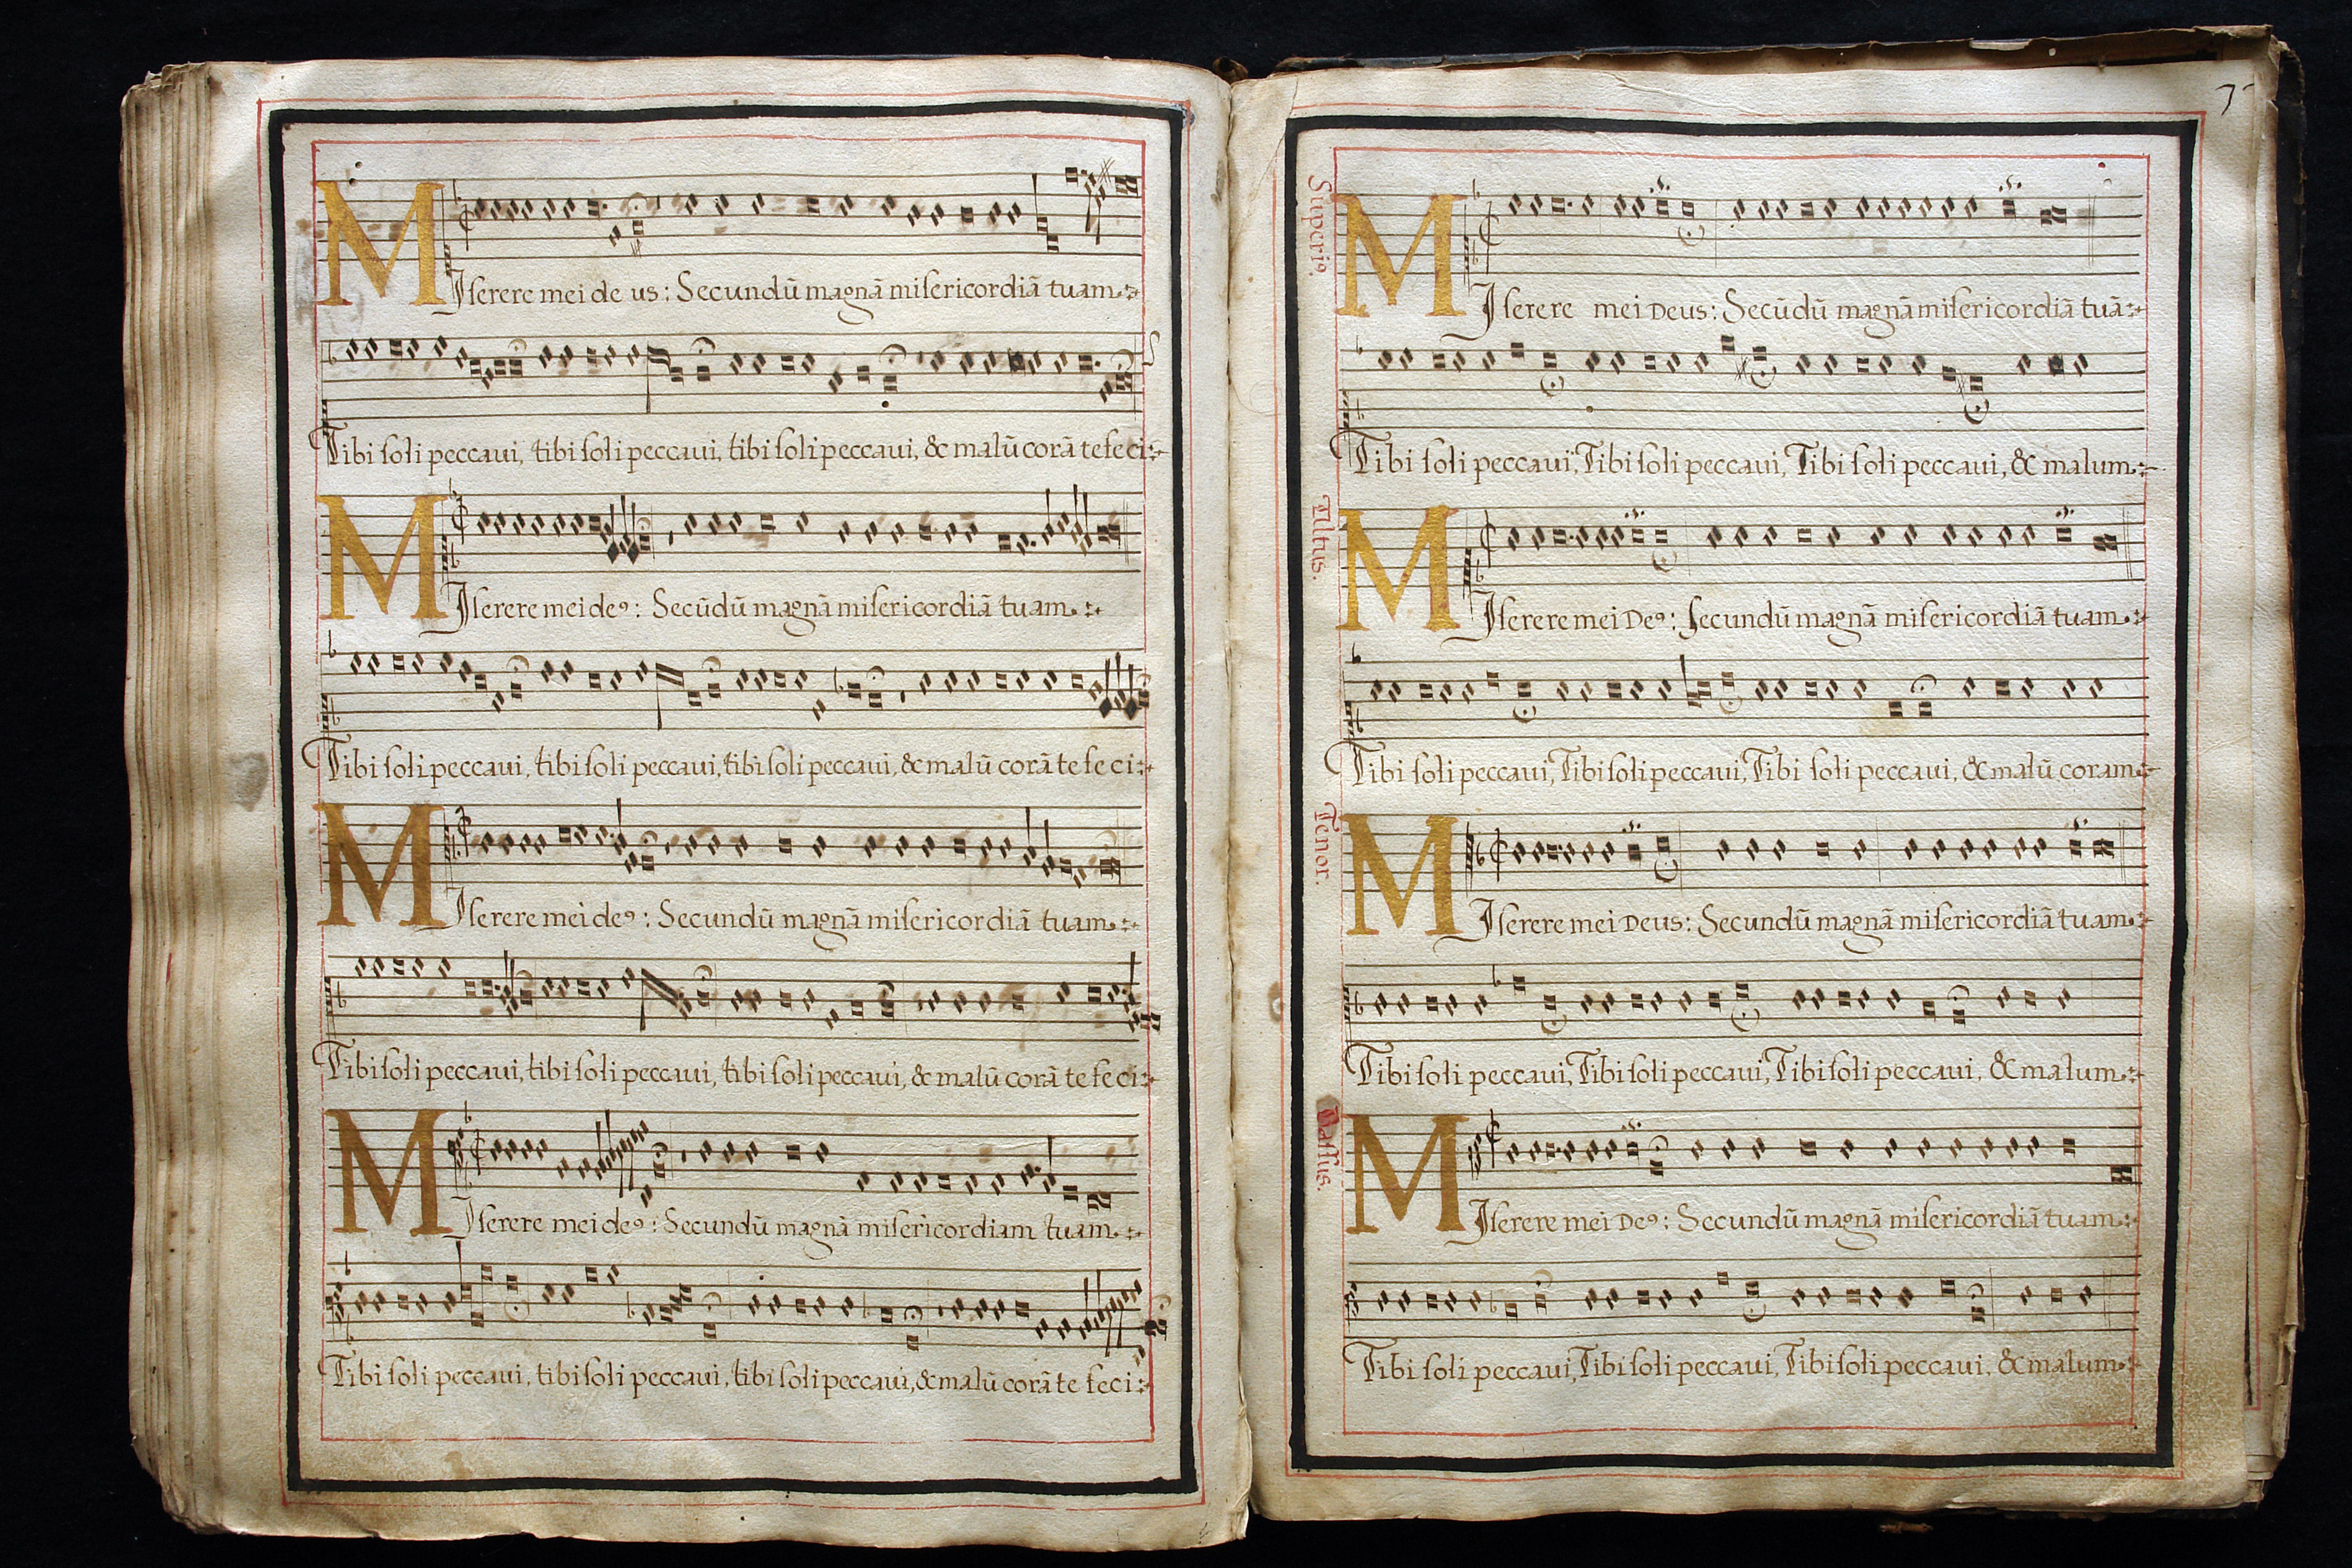 MIserere mei de us: Secundū magnā misericordiā tuam
Tibi soli peccaui, tibi soli peccaui, tibi soli peccaui, & malū corā te feci
MIserere mei deꝰ: Secūdū magnā misericordiā tuam
Tibi soli peccaui, tibi soli peccaui, tibi soli peccaui, & malū corā te feci
MIserere mei deꝰ: Secundū magnā misericordiā tuam
Tibi soli peccaui, tibi soli peccaui, tibi soli peccaui, & malū corā te feci
MIserere mei deꝰ: Secundū magnā misericordiam tuam
Tibi soli peccaui, tibi soli peccaui, tibi soli peccaui, & malū corā te feci
Superiꝰ.
MIserere mei Deus: Secūdū magnā misericordiā tuā
Tibi soli peccaui, Tibi soli peccaui, Tibi soli peccaui, & malum
Altus.
MIserere mei Deꝰ: Secundū magnā misericordiā tuam
Tibi soli peccaui, Tibi soli peccaui, Tibi soli peccaui, & malū coram
Tenor.
MIserere mei Deus: Secundū magnā misericordiā tuam
Tibi soli peccaui, Tibi soli peccaui, Tibi soli peccaui, & malum
Bassus.
MIserere mei Deꝰ: Secundū magnā misericordiā tuam
Tibi soli peccaui, Tibi soli peccaui, Tibi soli peccaui, & malum